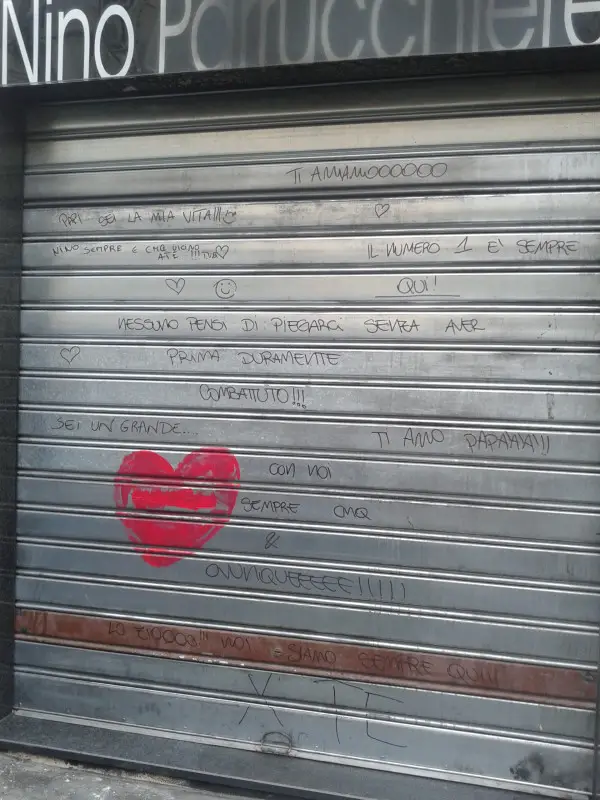 Nino Parrucchiere
TI AMIAMOOOOOO
SEI LA MIA VITA!!!
NINO SEMPRE E CMQ VICINO
A TE !!! TVB
IL NUMERO 1 E' SEMPRE
QUI!
NESSUNO PENSI DI PIEGARCI SENZA AVER
PRIMA DURAMENTE
COMBATTUTO!!!
SEI UN GRANDE...
TI AMO PAPAAAA!!!
CON NOI
SEMPRE CMQ
&
OVUNQUEEEEE!!!!!!
NOI SIAMO SEMPRE QUI!!!
X TE